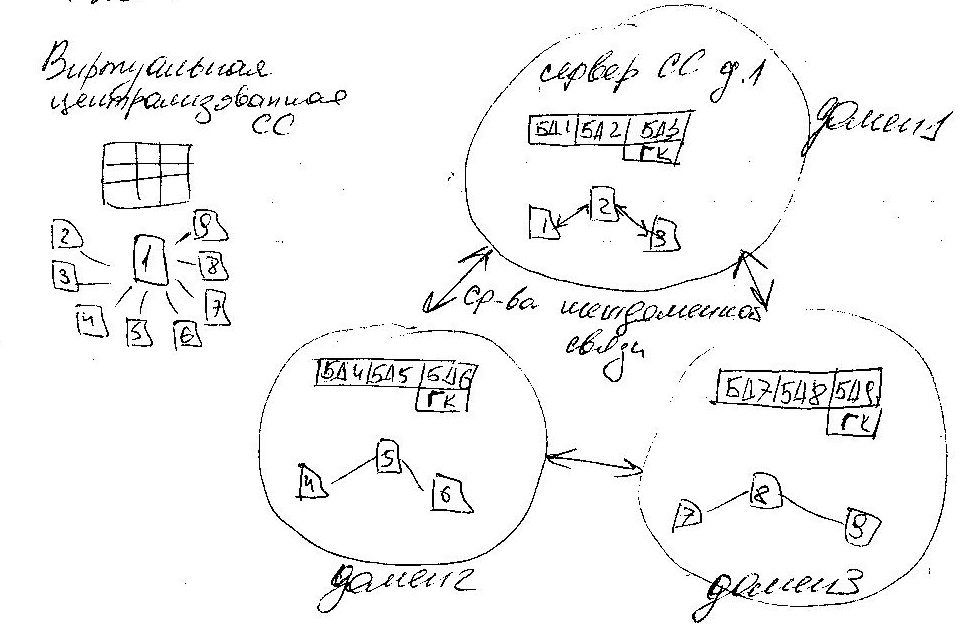 Виртуальная
централизованная
СС
2
3
4
5
6
7
8
9
1
сервер СС д.1
домен1
БД1 БД2 БД3
ГК
1
2
3
ср-ва междоменной
связи
БД4 БД5 БД6
ГК
4
5
6
домен2
БД7 БД8 БД9
ГК
7
8
9
домен3